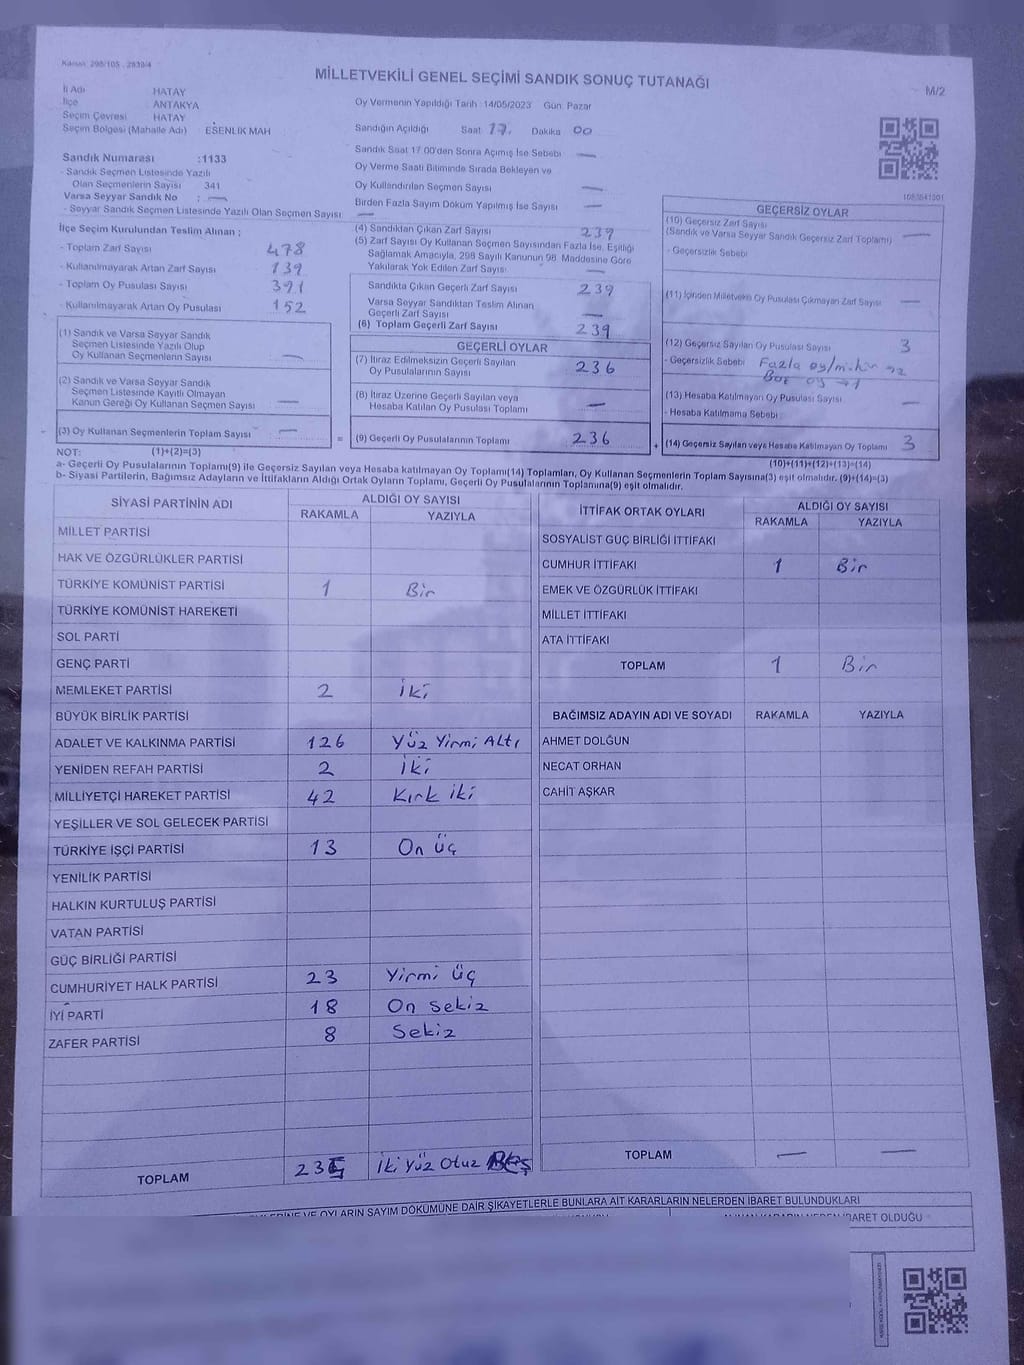 Kanun: 298/105 , 2839/4
MİLLETVEKİLİ GENEL SEÇİMİ SANDIK SONUÇ TUTANAĞI
M/2
İl Adı HATAY
İlçe ANTAKYA
Seçim Çevresi HATAY
Seçim Bölgesi (Mahalle Adı) ESENLİK MAH
Sandık Numarası :1133
- Sandık Seçmen Listesinde Yazılı
Olan Seçmenlerin Sayısı 341
Varsa Seyyar Sandık No : —
- Seyyar Sandık Seçmen Listesinde Yazılı Olan Seçmen Sayısı —
İlçe Seçim Kurulundan Teslim Alınan ;
- Toplam Zarf Sayısı 478
- Kullanılmayarak Artan Zarf Sayısı 139
- Toplam Oy Pusulası Sayısı 391
- Kullanılmayarak Artan Oy Pusulası 152
(1) Sandık ve Varsa Seyyar Sandık
Seçmen Listesinde Yazılı Olup
Oy Kullanan Seçmenlerin Sayısı —
(2) Sandık ve Varsa Seyyar Sandık
Seçmen Listesinde Kayıtlı Olmayan
Kanun Gereği Oy Kullanan Seçmen Sayısı —
(3) Oy Kullanan Seçmenlerin Toplam Sayısı —
Oy Vermenin Yapıldığı Tarih 14/05/2023 Gün: Pazar
Sandığın Açıldığı Saat 17. Dakika 00
Sandık Saat 17.00'den Sonra Açımış İse Sebebi —
Oy Verme Saati Bitiminde Sırada Bekleyen ve
Oy Kullandırılan Seçmen Sayısı —
Birden Fazla Sayım Döküm Yapılmış İse Sayısı —
(4) Sandıktan Çıkan Zarf Sayısı 239
(5) Zarf Sayısı Oy Kullanan Seçmen Sayısından Fazla İse, Eşitliği
Sağlamak Amacıyla, 298 Sayılı Kanunun 98. Maddesine Göre
Yakılarak Yok Edilen Zarf Sayısı —
Sandıkta Çıkan Geçerli Zarf Sayısı 239
Varsa Seyyar Sandıktan Teslim Alınan
Geçerli Zarf Sayısı —
(6) Toplam Geçerli Zarf Sayısı 239
GEÇERLİ OYLAR
(7) İtiraz Edilmeksizin Geçerli Sayılan
Oy Pusulalarının Sayısı 236
(8) İtiraz Üzerine Geçerli Sayılan veya
Hesaba Katılan Oy Pusulası Toplamı —
= (9) Geçerli Oy Pusulalarının Toplamı 236
GEÇERSİZ OYLAR
(10) Geçersiz Zarf Sayısı
(Sandık ve Varsa Seyyar Sandık Geçersiz Zarf Toplamı) —
- Geçersizlik Sebebi
(11) İçinden Milletvekili Oy Pusulası Çıkmayan Zarf Sayısı —
(12) Geçersiz Sayılan Oy Pusulası Sayısı 3
- Geçersizlik Sebebi Fazla oy/mühür
Boş oy
(13) Hesaba Katılmayan Oy Pusulası Sayısı —
- Hesaba Katılmama Sebebi :
+ (14) Geçersiz Sayılan veya Hesaba Katılmayan Oy Toplamı 3
NOT: (1)+(2)=(3) (10)+(11)+(12)+(13)=(14)
a- Geçerli Oy Pusulalarının Toplamı(9) ile Geçersiz Sayılan veya Hesaba katılmayan Oy Toplamı(14) Toplamları, Oy Kullanan Seçmenlerin Toplam Sayısına(3) eşit olmalıdır. (9)+(14)=(3)
b- Siyasi Partilerin, Bağımsız Adayların ve İttifakların Aldığı Ortak Oyların Toplamı, Geçerli Oy Pusulalarının Toplamına(9) eşit olmalıdır.
SİYASİ PARTİNİN ADI ALDIĞI OY SAYISI
RAKAMLA YAZIYLA
MİLLET PARTİSİ
HAK VE ÖZGÜRLÜKLER PARTİSİ
TÜRKİYE KOMÜNİST PARTİSİ 1 Bir
TÜRKİYE KOMÜNİST HAREKETİ
SOL PARTİ
GENÇ PARTİ
MEMLEKET PARTİSİ 2 iki
BÜYÜK BİRLİK PARTİSİ
ADALET VE KALKINMA PARTİSİ 126 Yüz Yirmi Altı
YENİDEN REFAH PARTİSİ 2 iki
MİLLİYETÇİ HAREKET PARTİSİ 42 Kırk iki
YEŞİLLER VE SOL GELECEK PARTİSİ
TÜRKİYE İŞÇİ PARTİSİ 13 On üç
YENİLİK PARTİSİ
HALKIN KURTULUŞ PARTİSİ
VATAN PARTİSİ
GÜÇ BİRLİĞİ PARTİSİ
CUMHURİYET HALK PARTİSİ 23 Yirmi üç
İYİ PARTİ 18 On sekiz
ZAFER PARTİSİ 8 Sekiz
TOPLAM 235 İki Yüz Otuz Beş
İTTİFAK ORTAK OYLARI ALDIĞI OY SAYISI
RAKAMLA YAZIYLA
SOSYALİST GÜÇ BİRLİĞİ İTTİFAKI
CUMHUR İTTİFAKI 1 Bir
EMEK VE ÖZGÜRLÜK İTTİFAKI
MİLLET İTTİFAKI
ATA İTTİFAKI
TOPLAM 1 Bir
BAĞIMSIZ ADAYIN ADI VE SOYADI RAKAMLA YAZIYLA
AHMET DOLĞUN
NECAT ORHAN
CAHİT AŞKAR
TOPLAM — —
VE OYLARIN SAYIM DÖKÜMÜNE DAİR ŞİKAYETLERLE BUNLARA AİT KARARLARIN NELERDEN İBARET BULUNDUKLARI
İBARET OLDUĞU